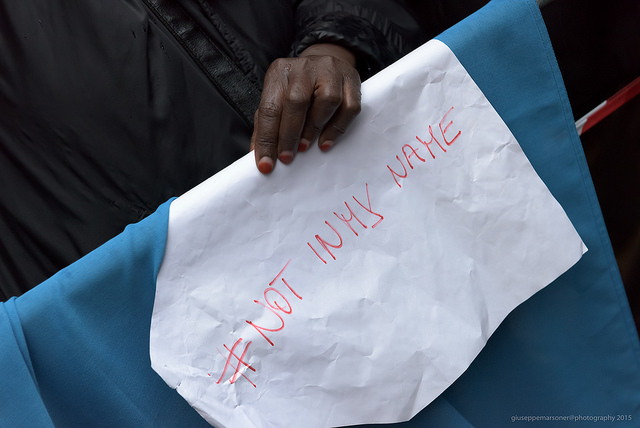 #NOT IN MY NAME
giuseppemarsoner@photography 2015